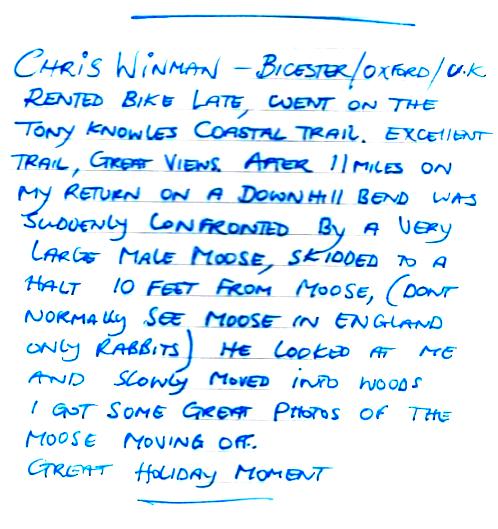 CHRIS WINMAN – BICESTER/OXFORD/U.K
RENTED BIKE LATE, WENT ON THE
TONY KNOWLES COASTAL TRAIL. EXCELLENT
TRAIL, GREAT VIEWS. AFTER 11 MILES ON
MY RETURN ON A DOWNHILL BEND WAS
SUDDENLY CONFRONTED BY A VERY
LARGE MALE MOOSE, SKIDDED TO A
HALT 10 FEET FROM MOOSE, (DONT
NORMALLY SEE MOOSE IN ENGLAND
ONLY RABBITS) HE LOOKED AT ME
AND SLOWLY MOVED INTO WOODS
I GOT SOME GREAT PHOTOS OF THE
MOOSE MOVING OFF.
GREAT HOLIDAY MOMENT